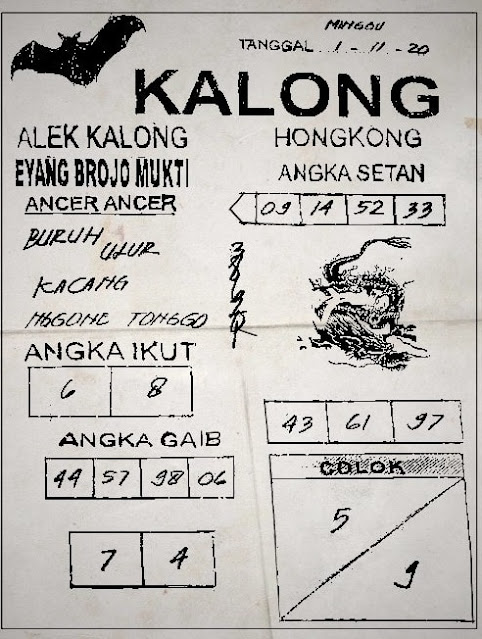 MINGGU
TANGGAL 1 - 11 - 20
KALONG
ALEK KALONG
EYANG BROJO MUKTI
ANCER ANCER
BURUH
ULUR
KACANG
NGGONE TONGGO
HONGKONG
ANGKA SETAN
09 14 52 33
ANGKA IKUT
6 8
ANGKA GAIB
44 57 98 06
7 4
43 61 97
COLOK
5
9